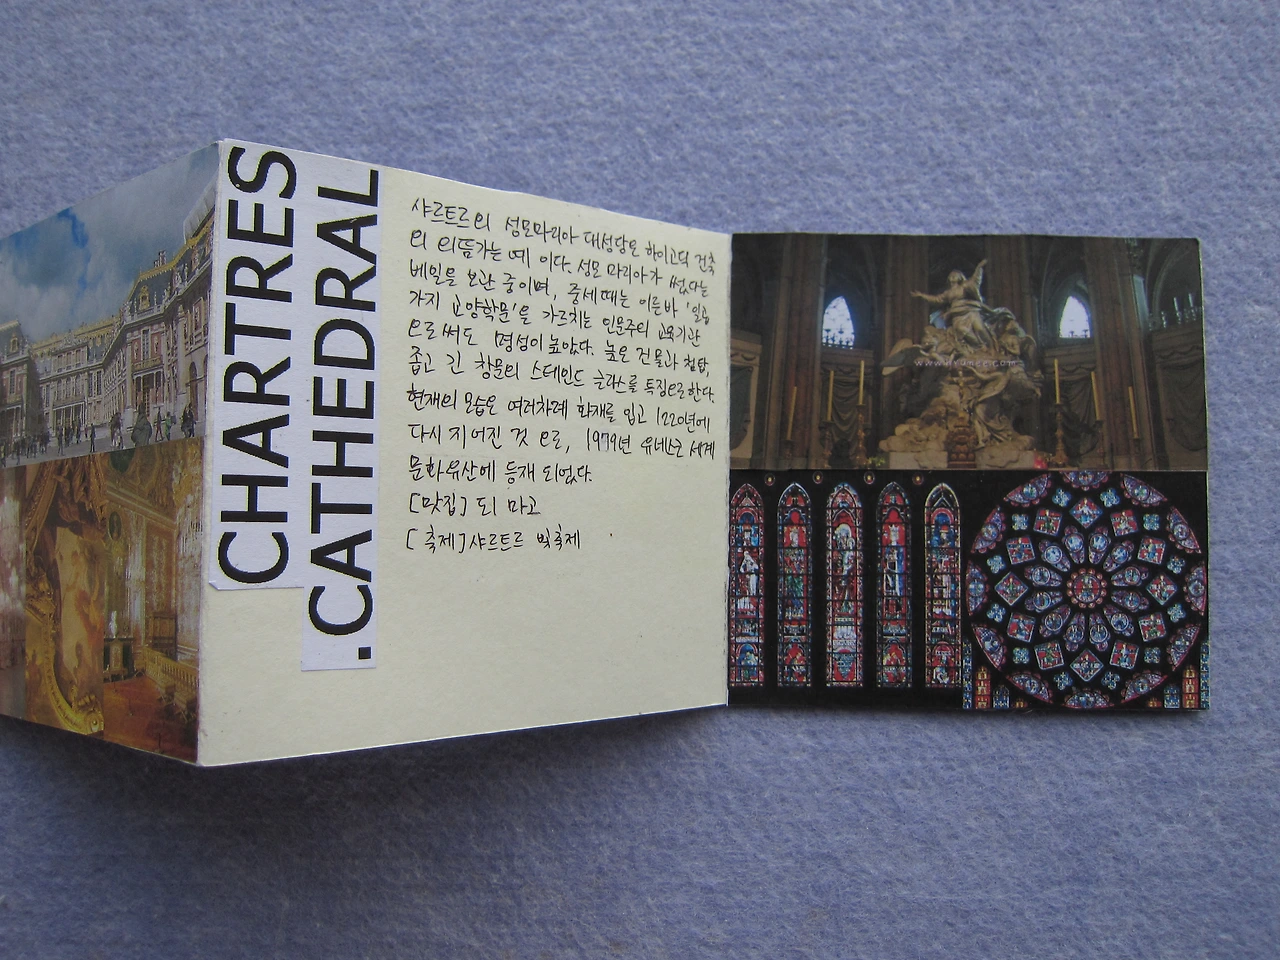 CHARTRES
CATHEDRAL.
샤르트르의 성모마리아 대성당은 하이고딕 건축
의 으뜸가는 예 이다. 성모 마리아가 썼다는
베일을 보관 중이며, 중세때는 이른바 '일곱
가지 교양학문'을 가르치는 인문주의 교육기관
으로써도 명성이 높았다. 높은 건물과 첨탑,
좁고 긴 창문의 스테인드 글라스를 특징으로 한다.
현재의 모습은 여러차례 화재를 입고 1220년에
다시 지어진 것 으로, 1979년 유네스코 세계
문화유산에 등재 되었다.
[맛집] 르 마고
[축제] 샤르트르 빛축제